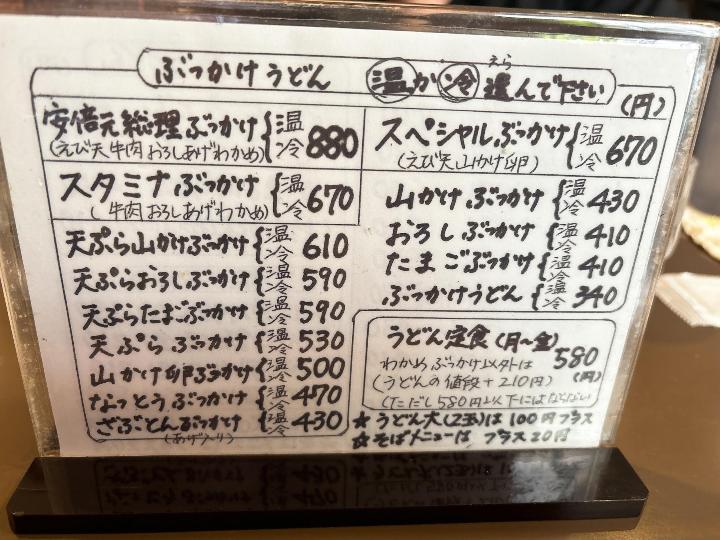 ぶっかけうどん 温か冷選んで下さい
えら
(円)
安倍元総理ぶっかけ{温冷 880
(えび天牛肉おろしあげわかめ)
スタミナぶっかけ{温冷 670
(牛肉おろしあげわかめ)
天ぷら山かけぶっかけ{温冷 610
天ぷらおろしぶっかけ{温冷 590
天ぷらたまごぶっかけ{温冷 590
天ぷらぶっかけ{温冷 530
山かけ卵ぶっかけ{温冷 500
なっとうぶっかけ{温冷 470
ざぶとんぶっかけ{温冷 430
(あげ入り)
スペシャルぶっかけ{温冷 670
(えび天山かけ卵)
山かけぶっかけ{温冷 430
おろしぶっかけ{温冷 410
たまごぶっかけ{温冷 410
ぶっかけうどん{温冷 340
うどん定食(月〜金) 580
わかめぶっかけ以外は (円)
(うどんの値段+210円)
(ただし580円以下にはならない
★うどん大(2玉)は100円プラス
★そばメニューは、プラス20円